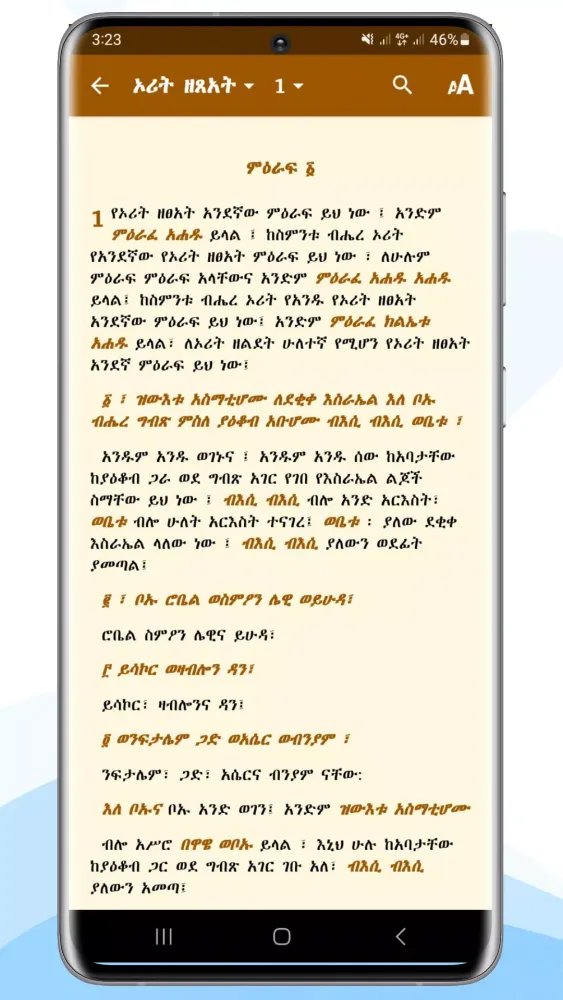 3:23
4G+
46%
ኦሪት ዘጸአት 1
AA
ምዕራፍ ፩
1 የኦሪት ዘፀአት አንደኛው ምዕራፍ ይህ ነው ፤ አንድም
ምዕራፈ አሐዱ ይላል ፤ ከስምንቱ ብሔረ ኦሪት
የአንደኛው የኦሪት ዘፀአት ምዕራፍ ይህ ነው ፣ ለሁሉም
ምዕራፍ ምዕራፍ አላቸውና አንድም ምዕራፈ አሐዱ አሐዱ
ይላል፤ ከስምንቱ ብሔረ ኦሪት የአንዱ የኦሪት ዘፀአት
አንደኛው ምዕራፍ ይህ ነው፤ አንድም ምዕራፈ ክልኤቱ
አሐዱ ይላል፣ ለኦሪት ዘልደት ሁለተኛ የሚሆን የኦሪት ዘፀአት
አንደኛ ምዕራፍ ይህ ነው፤
፩ ፣ ዝውእቱ አስማቲሆሙ ለደቂቀ እስራኤል እለ ቦኡ
ብሔረ ግብጽ ምስለ ያዕቆብ አቡሆሙ ብእሲ ብእሲ ወቤቱ ፣
አንዱም አንዱ ወገኑና ፤ አንዱም አንዱ ሰው ከአባታቸው
ከያዕቆብ ጋራ ወደ ግብጽ አገር የገቡ የእስራኤል ልጆች
ስማቸው ይህ ነው ፤ ብእሲ ብእሲ ብሎ አንድ አርእስት፣
ወቤቱ ብሎ ሁለት አርእስት ተናገረ፤ ወቤቱ ፡ ያለው ደቂቀ
እስራኤል ላለው ነው ፤ ብእሲ ብእሲ ያለውን ወደፊት
ያመጣል፤
፪ ፣ ቦኡ ሮቤል ወስምዖን ሌዊ ወይሁዳ፣
ሮቤል ስምዖን ሌዊና ይሁዳ፣
፫ ይሳኮር ወዛብሎን ዳን፣
ይሳኮር፣ ዛብሎንና ዳን፤
፬ ወንፍታሌም ጋድ ወአሴር ወብንያም ፣
ንፍታሌም፣ ጋድ፣ አሴርና ብንያም ናቸው:
እለ ቦኡና ቦኡ አንድ ወገን፤ አንድም ዝውእቱ አስማቲሆሙ
ብሎ አሥሮ በዋዌ ወቦኡ ይላል ፣ እኒህ ሁሉ ከአባታቸው
ከያዕቆብ ጋር ወደ ግብጽ አገር ገቡ አለ፣ ብእሲ ብእሲ
ያለውን አመጣ፤